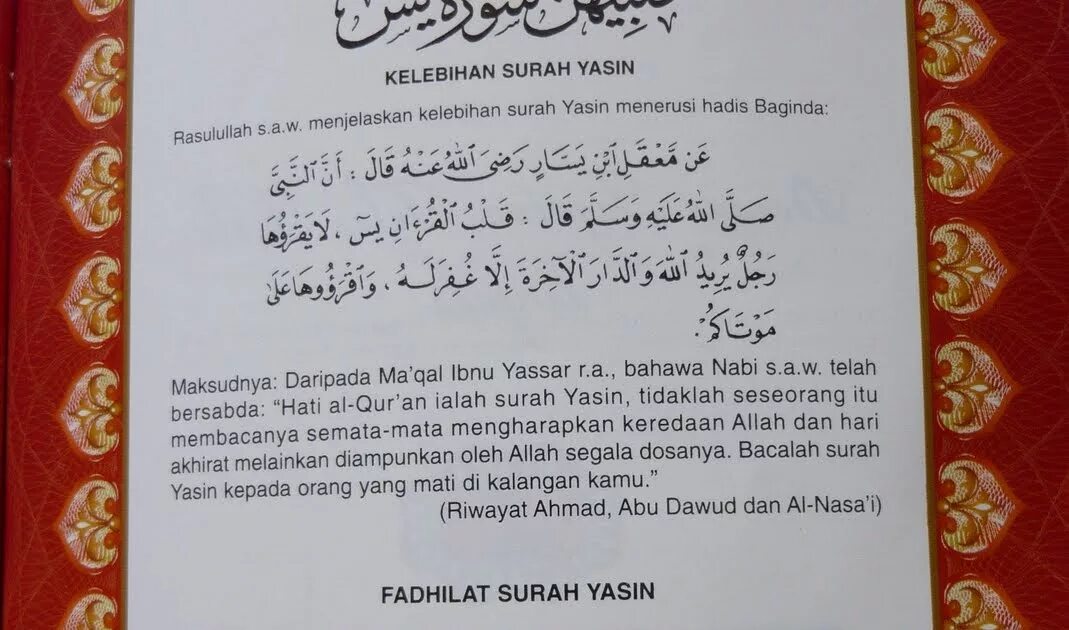 سورة يس
KELEBIHAN SURAH YASIN
Rasulullah s.a.w. menjelaskan kelebihan surah Yasin menerusi hadis Baginda:
عَن مَّعْقَلِ ٱبْنِ يَسَارٍ رَضِىَ ٱللَّهُ عَنْهُ قَالَ : أَنَّ ٱلنَّبِىَّ
صَلَّى ٱللَّهُ عَلَيْهِ وَسَلَّمَ قَالَ : قَلْبُ ٱلْقُرْءَانِ يسٓ ، لَا يَقْرَؤُهَا
رَجُلٌ يُرِيدُ ٱللَّهَ وَٱلدَّارَ ٱلْآخِرَةَ إِلَّا غُفِرَ لَهُ ، وَٱقْرَؤُوهَا عَلَىٰ
مَوْتَاكُمْ.
Maksudnya: Daripada Ma'qal Ibnu Yassar r.a., bahawa Nabi s.a.w. telah
bersabda: “Hati al-Qur'an ialah surah Yasin, tidaklah seseorang itu
membacanya semata-mata mengharapkan keredaan Allah dan hari
akhirat melainkan diampunkan oleh Allah segala dosanya. Bacalah surah
Yasin kepada orang yang mati di kalangan kamu.”
(Riwayat Ahmad, Abu Dawud dan Al-Nasa'i)
FADHILAT SURAH YASIN